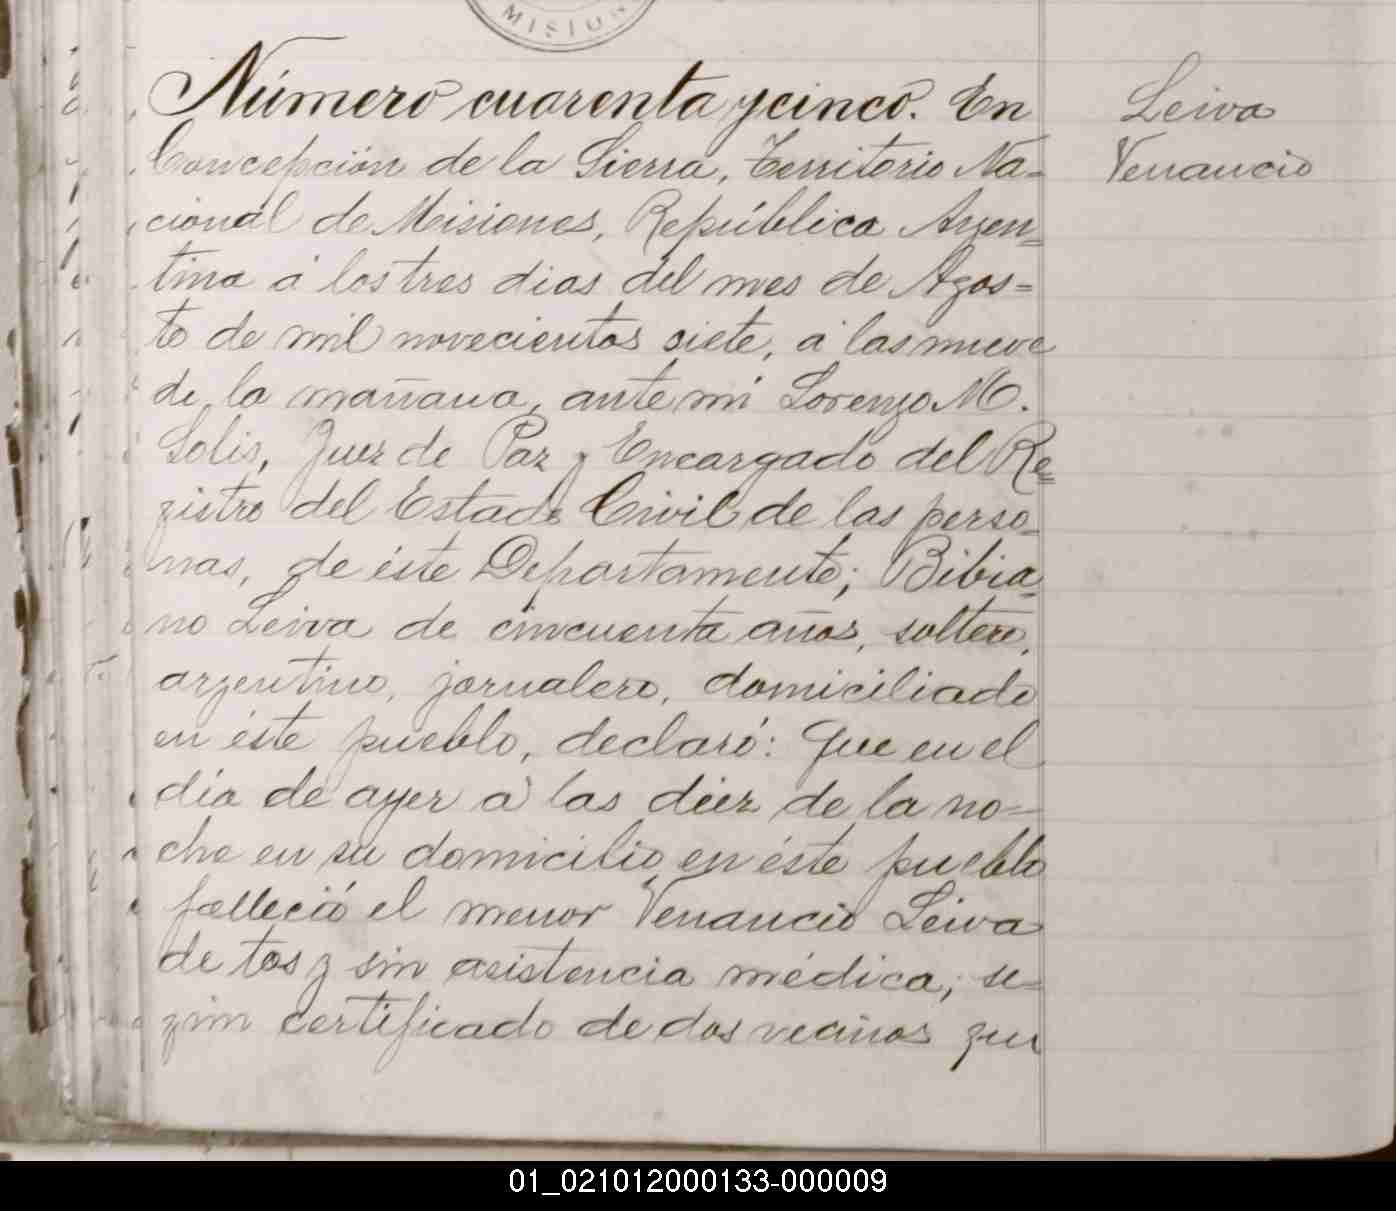 MISION
Número cuarenta y cinco. En
Concepción de la Sierra, Territorio Na-
cional de Misiones, República Argen-
tina á los tres dias del mes de Agos=
to de mil novecientos siete, á las nueve
de la mañana, ante mi Lorenzo M.
Solis, Juez de Paz y Encargado del Re=
gistro del Estado Civil de las perso-
nas, de éste Departamento; Bibia-
no Leiva de cincuenta años, soltero,
argentino, jornalero, domiciliado
en éste pueblo, declaró: Que en el
día de ayer á las diez de la no=
che en su domicilio en éste pueblo
falleció el menor Venancio Leiva
de tos y sin asistencia médica, se=
gún certificado de dos vecinos que
Leiva
Venancio
01_021012000133-000009